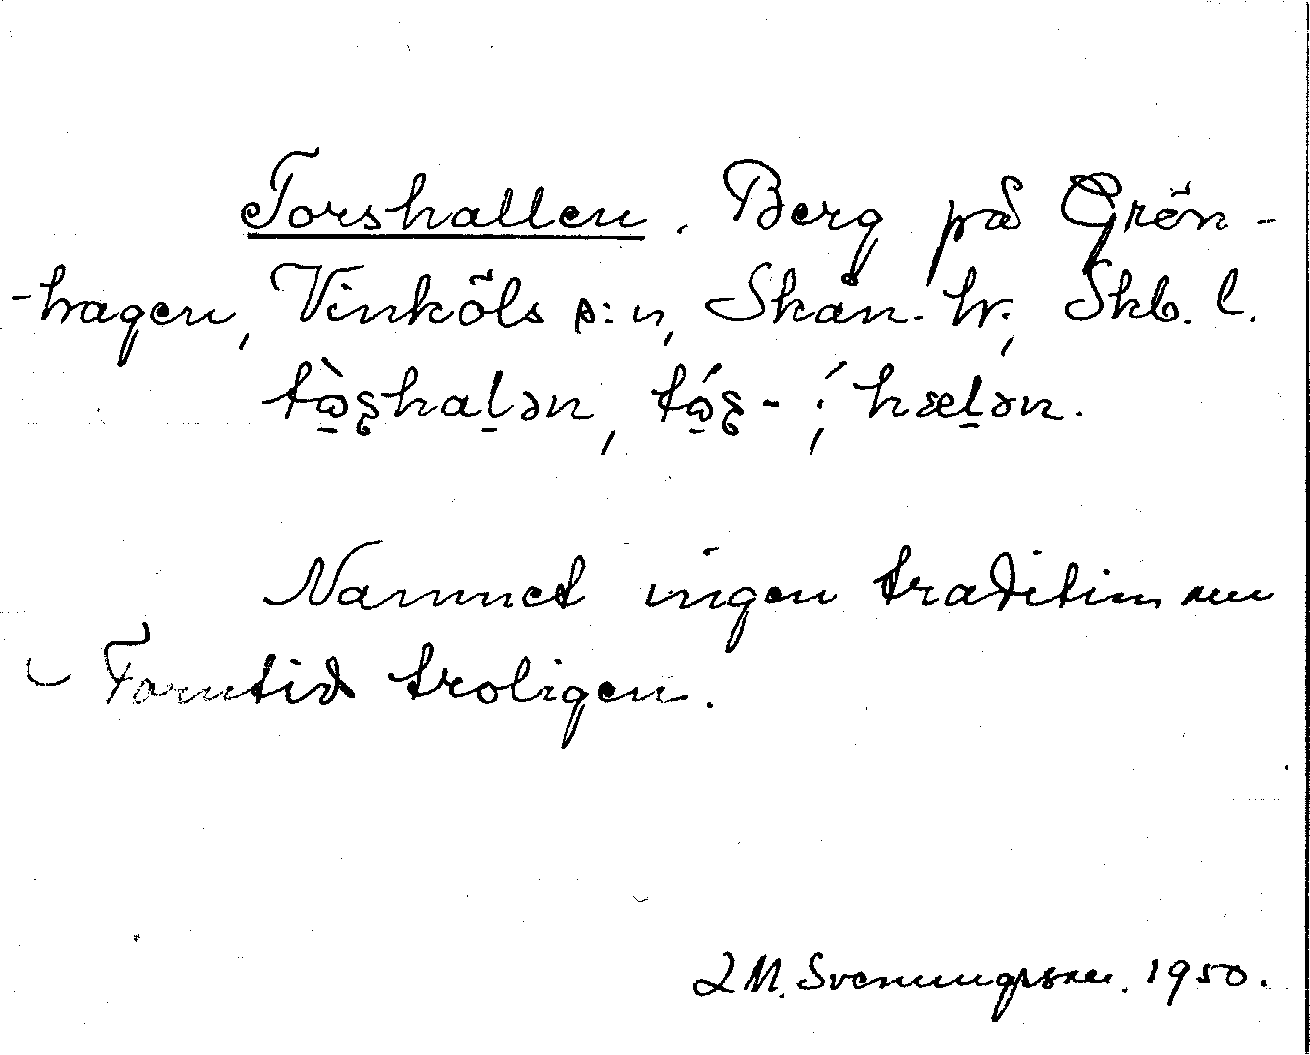 Torshallen. Berg på Grön-
-hagen, Vinköls s:n, Skån. hr., Skb. l.
tὼ̱ʂhaḻən, tώ̱ʂ- ; ́hæḻən.
Namnet ingen tradition om
Forntid troligen.
L M. Svenungsson. 1950.